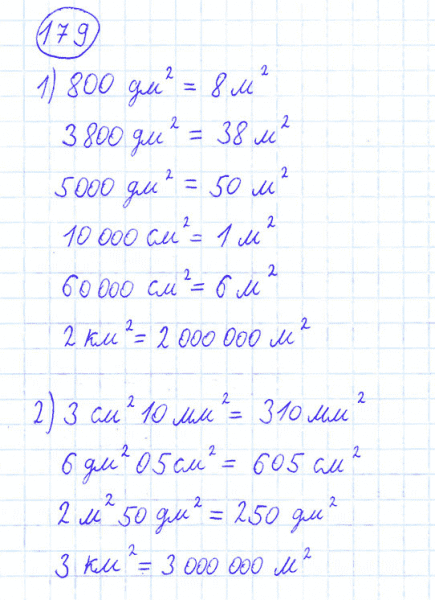 179
1) 800 дм² = 8 м²
3800 дм² = 38 м²
5000 дм² = 50 м²
10 000 см² = 1 м²
60 000 см² = 6 м²
2 км² = 2 000 000 м²
2) 3 см² 10 мм² = 310 мм²
6 дм² 05 см² = 605 см²
2 м² 50 дм² = 250 дм²
3 км² = 3 000 000 м²